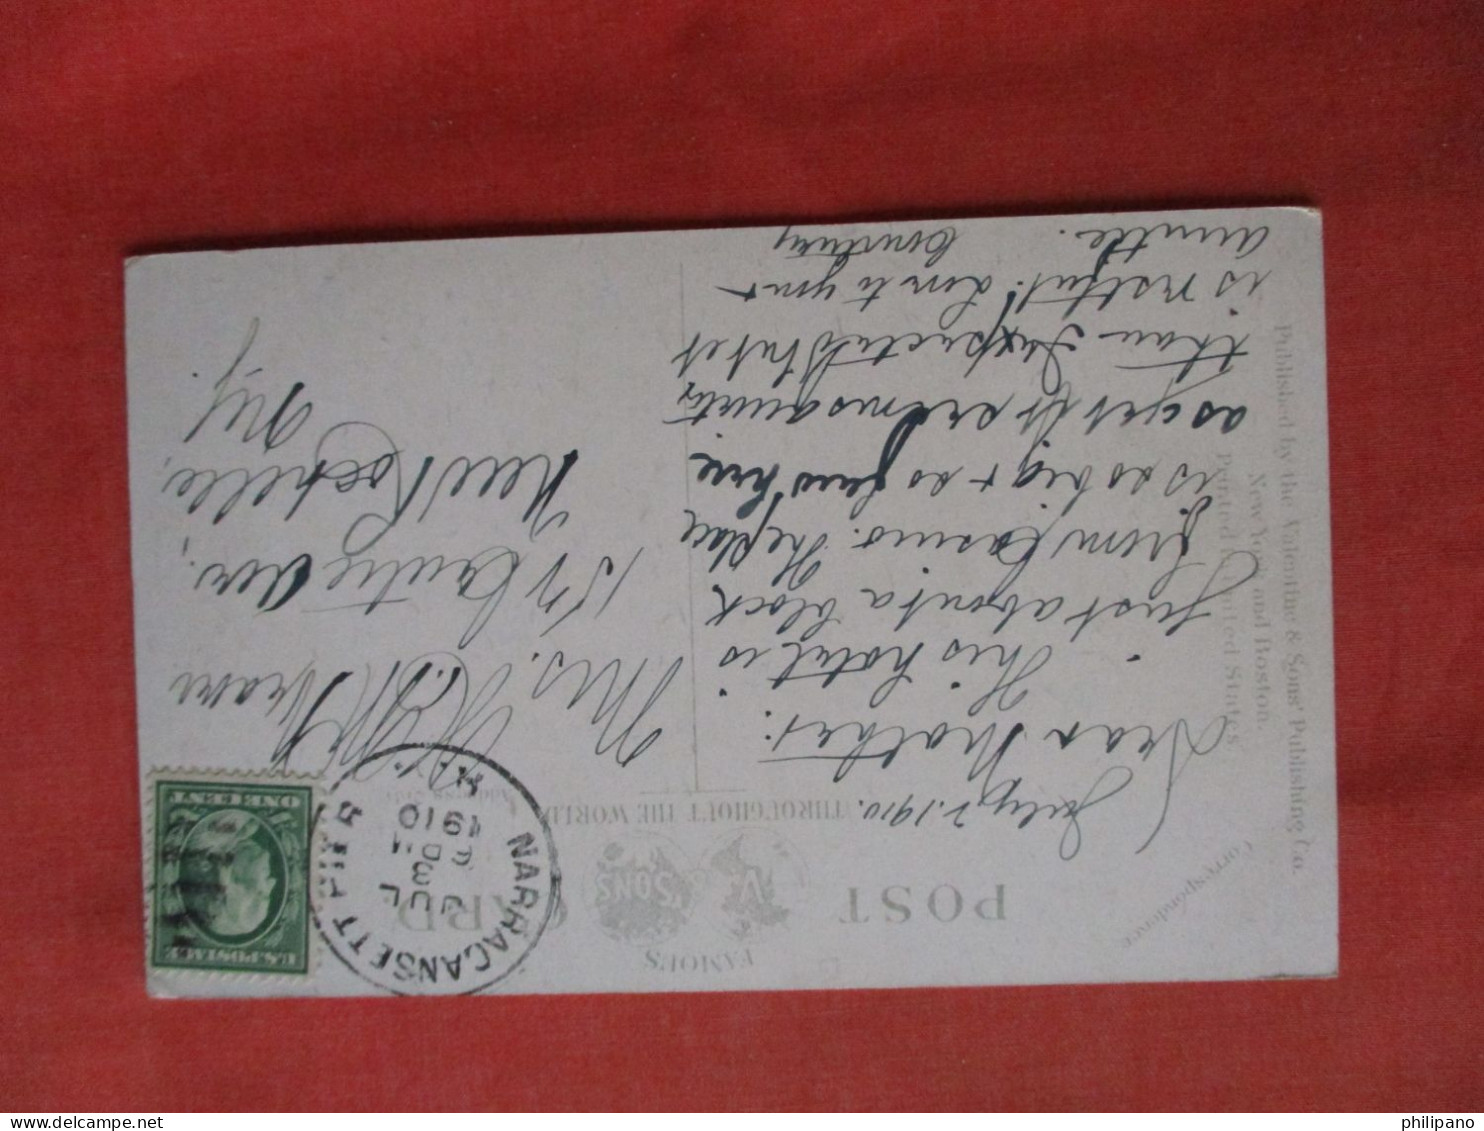 FAMOUS
POST CARD
V. & SONS
THROUGHOUT THE WORLD
Correspondence
Published by the Valentine & Sons' Publishing Co.
New York and Boston.
Printed in United States
July 2. 1910.
Dear Mother:
This hotel is
just about a block
from Casino. The place
is as big + as
as yet it seems quieter
than I expected but it
is restful. Love to you +
auntie.
Courtney
Mrs.
157 Centre Ave.,
New Rochelle,
N.Y.
NARRAGANSETT PIER
R.I.
JUL
3
1910
U.S. POSTAGE
ONE CENT
philipano